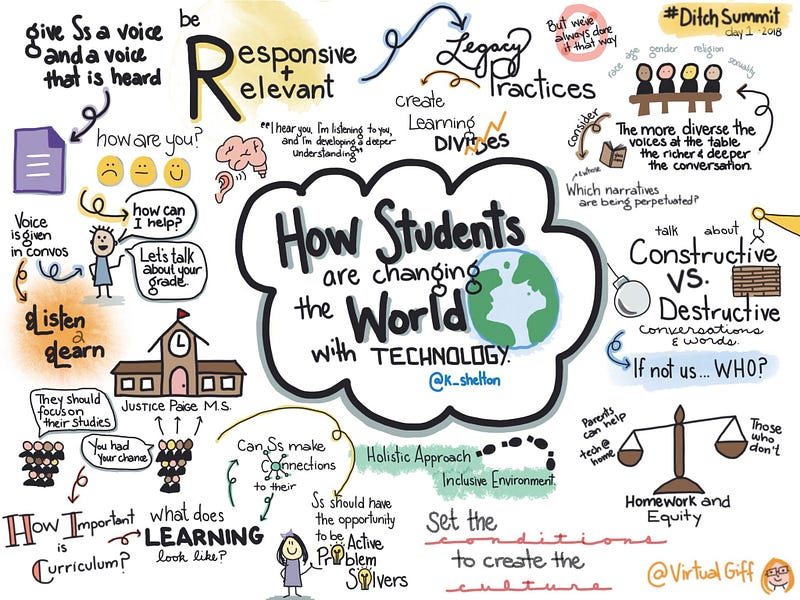 give Ss a voice
and a voice
that is heard
be
Responsive
+
Relevant
Legacy
Practices
But we've
always done
it that way
#DitchSummit
day 1 · 2018
race age gender religion sexuality
The more diverse the
voices at the table
the richer & deeper
the conversation.
consider
& whose
Which narratives
are being perpetuated?
create
Learning
DIVIDES
"I hear you, I'm listening to you,
and I'm developing a deeper
understanding"
how are you?
how can
I help?
Let's talk
about your
grade.
Voice
is given
in convos
Listen
2
Learn
How Students
are changing
the World
with TECHNOLOGY.
@k_shelton
talk about
Constructive
VS.
Destructive
conversations
& words.
If not us... WHO?
JUSTICE PAIGE M.S.
They should
focus on
their studies
You had
your chance
How Important
is
Curriculum?
what does
LEARNING
look like?
Can Ss make
Connections
to their
Ss should have
the opportunity
to be Active
Problem
Solvers
Holistic Approach
Inclusive Environment
Set the
conditions
to create the
culture
Parents
can help
tech@
home
Those
who
don't
Homework and
Equity
@VirtualGiff